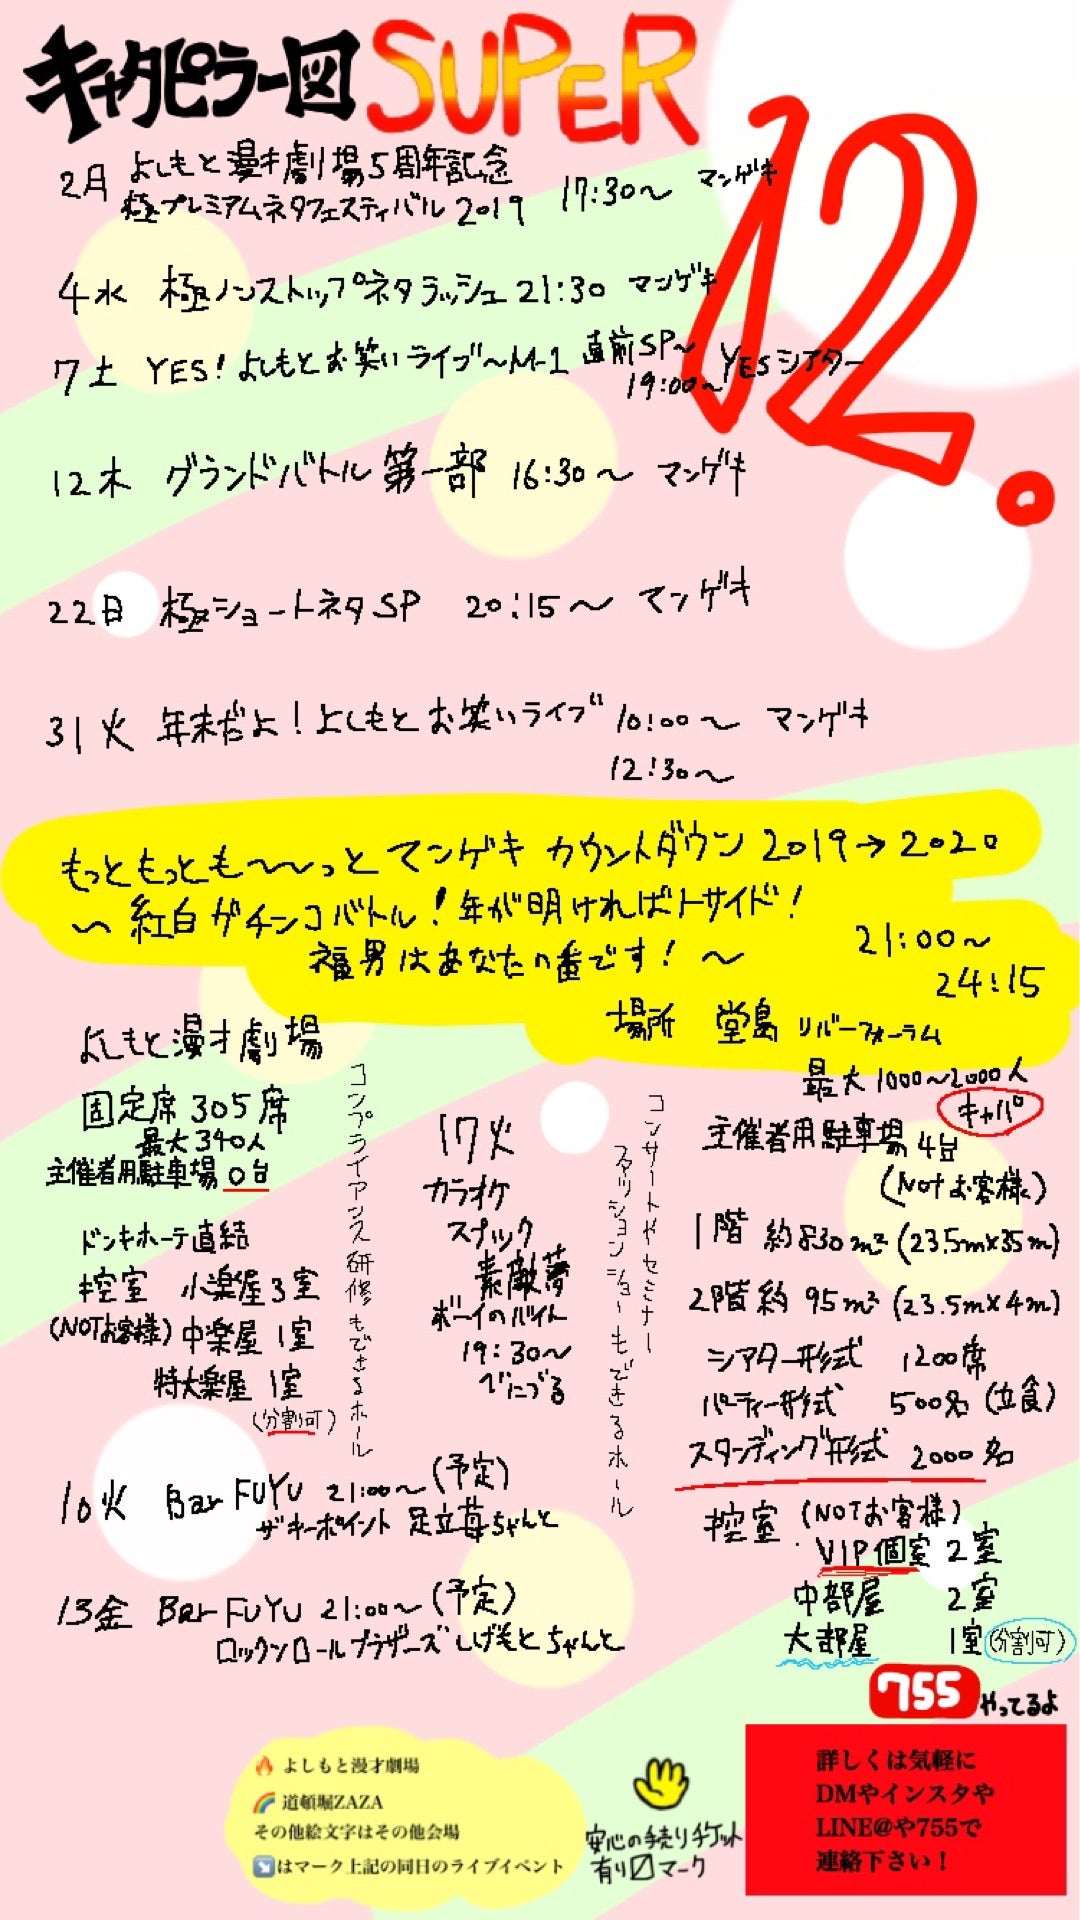 キャタピラー図 SUPER
12.
2月 よしもと漫才劇場5周年記念
極プレミアムネタフェスティバル2019 17:30〜 マンゲキ
4水 極ノンストップネタラッシュ 21:30 マンゲキ
7土 YES!よしもとお笑いライブ〜M-1 直前SP〜
19:00〜 YESシアター
12木 グランドバトル 第一部 16:30〜 マンゲキ
22日 極ショートネタSP 20:15〜 マンゲキ
31火 年末だよ!よしもとお笑いライブ 10:00〜 マンゲキ
12:30〜
もっともっとも〜〜っとマンゲキ カウントダウン 2019→2020
〜紅白ガチンコバトル!年が明ければトサイド!
福男はあなたの番です!〜
21:00〜
24:15
場所 堂島リバーフォーラム
よしもと漫才劇場
固定席 305席
最大340人
主催者用駐車場0台
ドンキホーテ直結
控室 小楽屋3室
(NOTお客様) 中楽屋 1室
特大楽屋 1室
(分割可)
コンプライアンス研修もできるホール
17火
カラオケ
スナック
素敵夢
ボーイのバイト
19:30〜
べにづる
コンサートやセミナー
ファッションショーもできるホール
最大1000〜2000人
キャパ
主催者用駐車場 4台
(NOTお客様)
1階 約830m² (23.5m×35m)
2階 約 95m² (23.5m×4m)
シアター形式 1200席
パーティー形式 500名 (立食)
スタンディング形式 2000名
控室 (NOTお客様)
VIP個室 2室
中部屋 2室
大部屋 1室 (分割可)
10火 Bar FUYU 21:00〜 (予定)
ザキーポイント 足立苺ちゃんと
13金 Bar FUYU 21:00〜 (予定)
ロックンロールブラザーズ しげもとちゃんと
755 やってるよ
🔥 よしもと漫才劇場
🌈 道頓堀ZAZA
その他絵文字はその他会場
↘️はマーク上記の同日のライブイベント
安心の手売りチケット
有り〼マーク
詳しくは気軽に
DMやインスタや
LINE@や755で
連絡下さい！